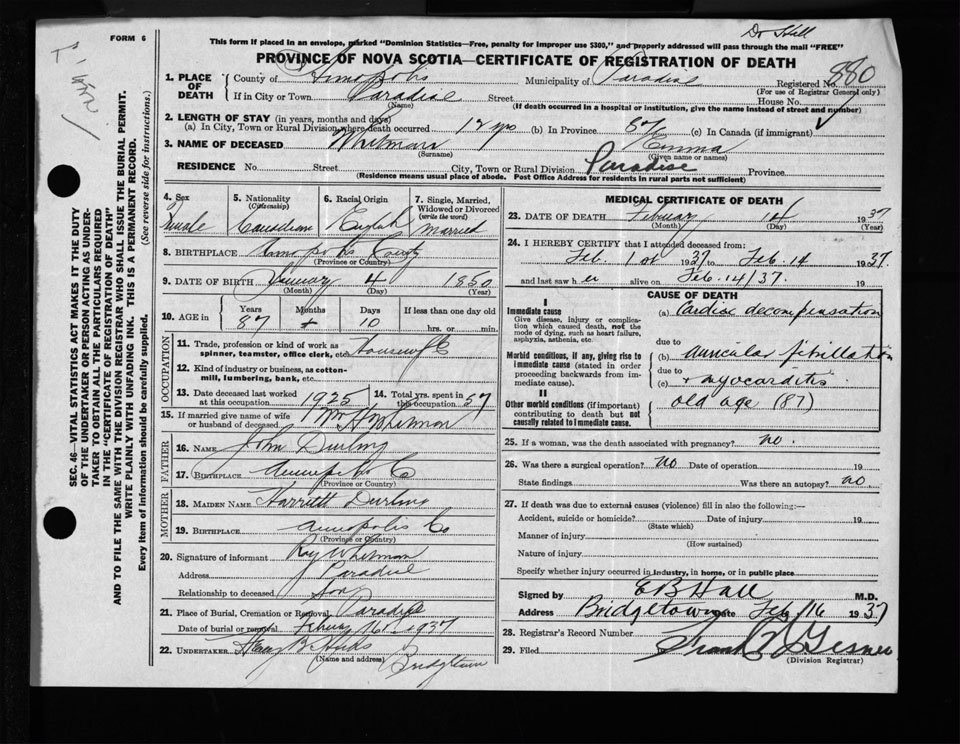 FORM 6
Dr Hall
This form if placed in an envelope, marked "Dominion Statistics—Free, penalty for improper use $300," and properly addressed will pass through the mail "FREE"
PROVINCE OF NOVA SCOTIA—CERTIFICATE OF REGISTRATION OF DEATH
1. PLACE OF DEATH
County of Annapolis Municipality of Paradise Registered No. 880
(For use of Registrar General only)
If in City or Town Paradise Street House No.
(Name) (If death occurred in a hospital or institution, give the name instead of street and number)
2. LENGTH OF STAY (in years, months and days)
(a) In City, Town or Rural Division where death occurred 12 yrs (b) In Province 87 (c) In Canada (if immigrant)
3. NAME OF DECEASED Whitman Emma
(Surname) (Given name or names)
RESIDENCE No. Street City, Town or Rural Division Paradise Province
(Residence means usual place of abode. Post Office Address for residents in rural parts not sufficient)
4. Sex 5. Nationality (Citizenship) 6. Racial Origin 7. Single, Married, Widowed or Divorced (write the word)
Female Canadian English Married
8. BIRTHPLACE Annapolis County
(Province or Country)
9. DATE OF BIRTH January 4 1850
(Month) (Day) (Year)
10. AGE in Years Months Days If less than one day old
87 + 10 hrs. or min.
OCCUPATION
11. Trade, profession or kind of work as spinner, teamster, office clerk, etc. Housewife
12. Kind of industry or business, as cotton-mill, lumbering, bank, etc.
13. Date deceased last worked at this occupation 1925 14. Total yrs. spent in this occupation 57
15. If married give name of wife or husband of deceased Whitman
FATHER
16. Name John Durling
17. Birthplace Annapolis C
(Province or Country)
MOTHER
18. Maiden Name Harriett Durling
19. BIRTHPLACE Annapolis Co
(Province or Country)
20. Signature of informant Ray Whitman
Address Paradise
Relationship to deceased Son
21. Place of Burial, Cremation or Removal Paradise
Date of burial or removal 16 1937
22. UNDERTAKER B Hicks
(Name and address) Bridgetown
MEDICAL CERTIFICATE OF DEATH
23. DATE OF DEATH February 14 1937
(Month) (Day) (Year)
24. I HEREBY CERTIFY that I attended deceased from:
Feb. 1st 1937 to Feb. 14 1937.
and last saw her alive on Feb. 14/37. 19
CAUSE OF DEATH
I
Immediate cause
Give disease, injury or complication which caused death, not the mode of dying, such as heart failure, asphyxia, asthenia, etc.
(a) Cardiac decompensation
Morbid conditions, if any, giving rise to immediate cause (stated in order proceeding backwards from immediate cause).
due to
(b) auricular fibrillation
due to
(c) + myocarditis
II
Other morbid conditions (if important) contributing to death but not causally related to immediate cause.
old age (87)
25. If a woman, was the death associated with pregnancy? no.
26. Was there a surgical operation? no Date of operation 19
State findings Was there an autopsy? no.
27. If death was due to external causes (violence) fill in also the following:—
Accident, suicide or homicide? Date of injury 19
(State which)
Manner of injury
(How sustained)
Nature of injury
Specify whether injury occurred in industry, in home, or in public place
Signed by E B Hall M.D.
Address Bridgetown Date Feb 16 1937
28. Registrar's Record Number
29. Filed Frank Gesner
(Division Registrar)
SEC. 46—VITAL STATISTICS ACT MAKES IT THE DUTY
OF THE UNDERTAKER OR PERSON ACTING AS UNDER-
TAKER TO OBTAIN ALL THE PARTICULARS REQUIRED
IN THE "CERTIFICATE OF REGISTRATION OF DEATH"
AND TO FILE THE SAME WITH THE DIVISION REGISTRAR WHO SHALL ISSUE THE BURIAL PERMIT.
WRITE PLAINLY WITH UNFADING INK. THIS IS A PERMANENT RECORD.
Every item of information should be carefully supplied. (See reverse side for instructions.)